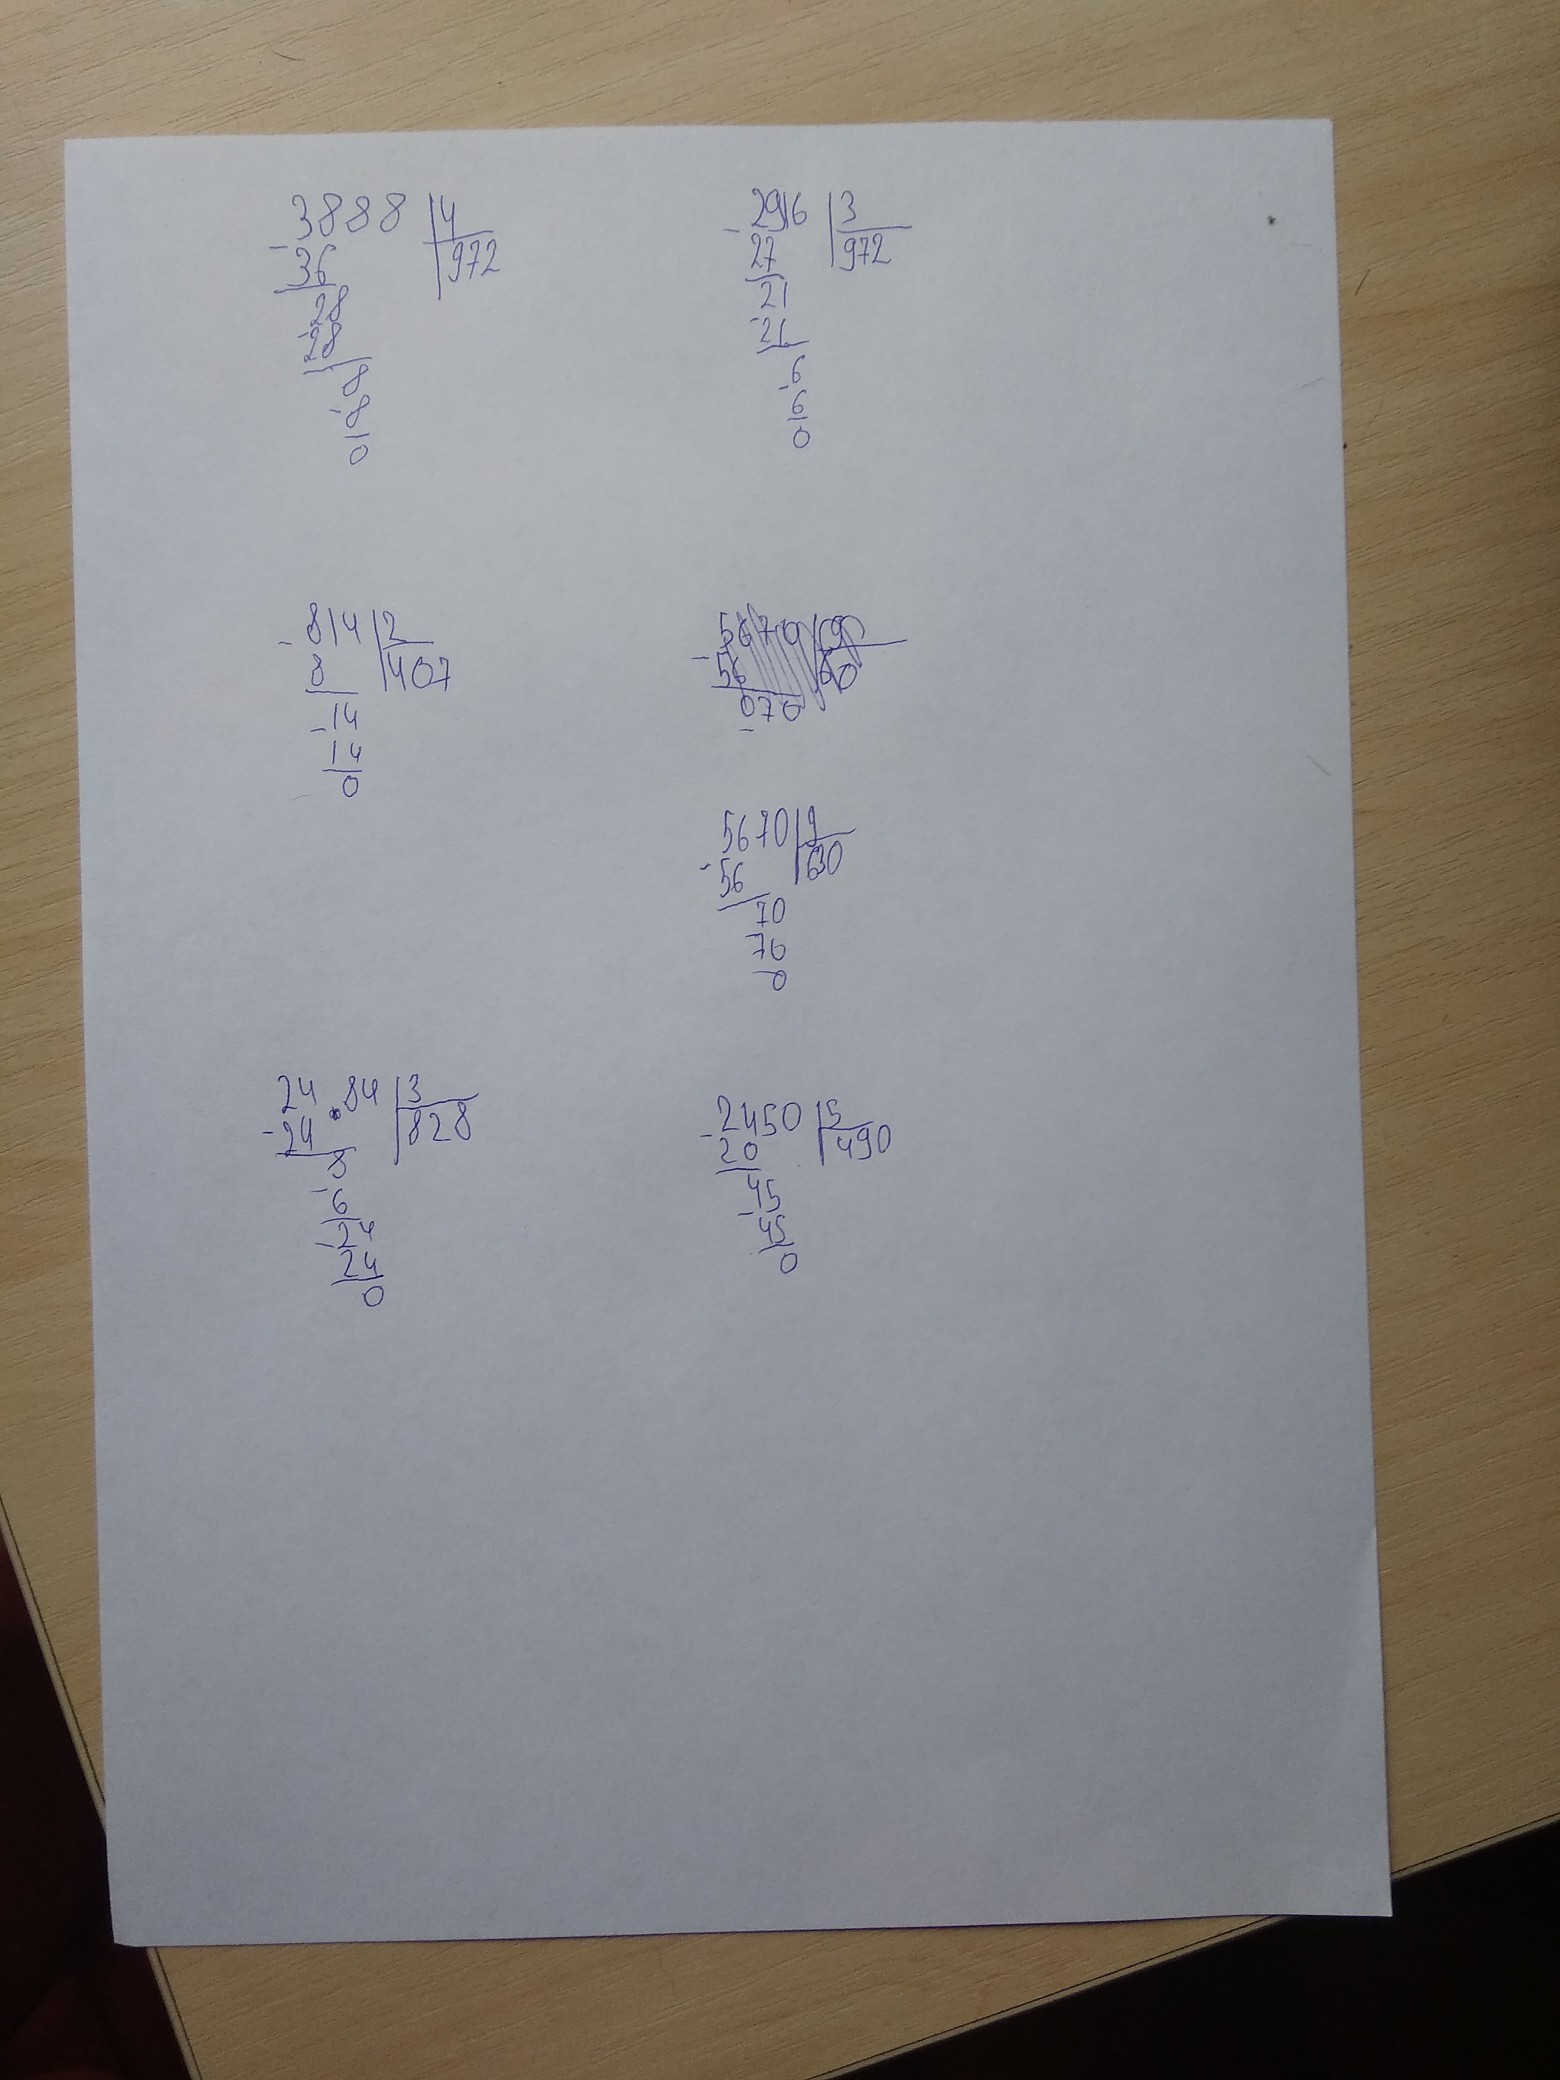 3888 4
- 36 972
28
- 28
8
- 8
0
2916 3
- 27 972
21
- 21
6
- 6
0
- 814 2
8 407
- 14
14
0
5670
- 56 60
070
-
5670 9
- 56 630
70
70
0
24 84 3
- 24 828
8
- 6
- 24
24
0
- 2450 5
20 490
- 45
45
0